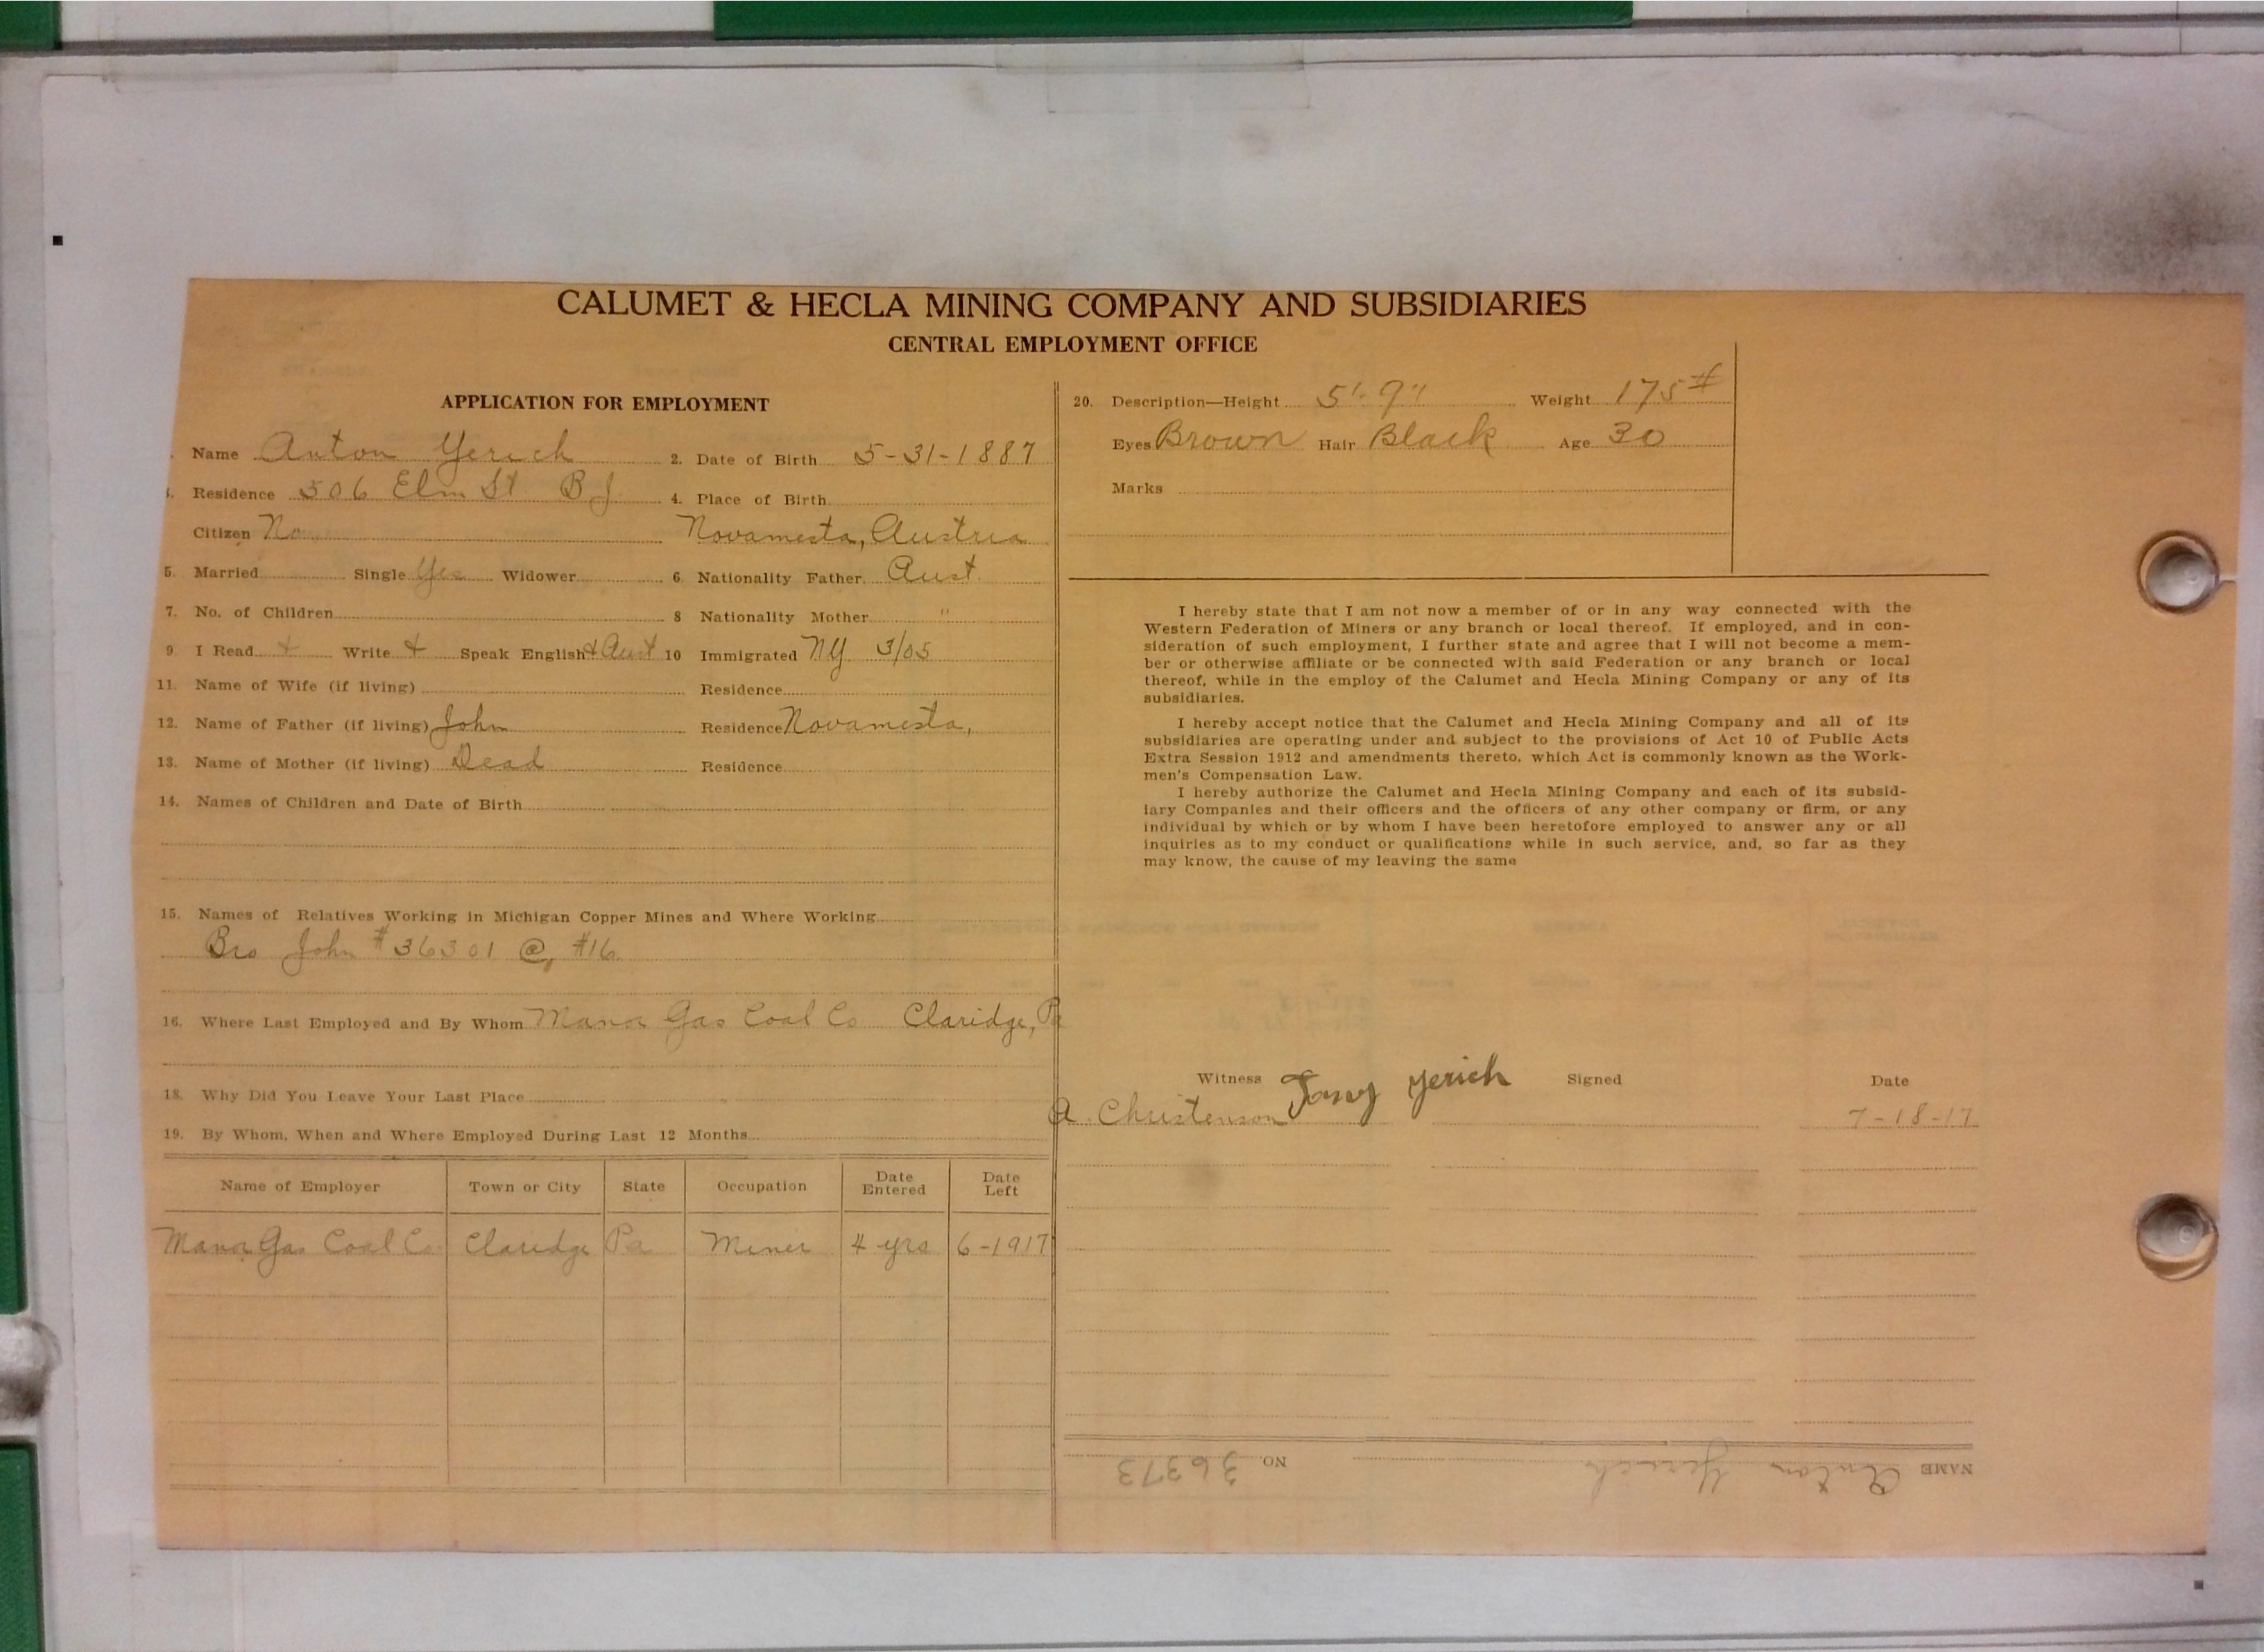 CALUMET & HECLA MINING COMPANY AND SUBSIDIARIES
CENTRAL EMPLOYMENT OFFICE
APPLICATION FOR EMPLOYMENT
Name Anton Yerich 2. Date of Birth 5-31-1887
Residence 506 Elm St B J 4. Place of Birth
Citizen No Novamesta, Austria
5. Married Single Yes Widower 6. Nationality Father Aust
7. No. of Children 8 Nationality Mother "
9. I Read + Write + Speak English + Aust 10 Immigrated NY 3/05
11. Name of Wife (if living) Residence
12. Name of Father (if living) John Residence Novamesta,
13. Name of Mother (if living) Dead Residence
14. Names of Children and Date of Birth
15. Names of Relatives Working in Michigan Copper Mines and Where Working
Bro John #36301 @ #16
16. Where Last Employed and By Whom Manor Gas Coal Co Claridge, Pa
18. Why Did You Leave Your Last Place
19. By Whom, When and Where Employed During Last 12 Months
Name of Employer Town or City State Occupation Date Entered Date Left
Manor Gas Coal Co Claridge Pa Miner 4 yrs 6-1917
20. Description—Height 5'-9" Weight 175#
Eyes Brown Hair Black Age 30
Marks
I hereby state that I am not now a member of or in any way connected with the
Western Federation of Miners or any branch or local thereof. If employed, and in con-
sideration of such employment, I further state and agree that I will not become a mem-
ber or otherwise affiliate or be connected with said Federation or any branch or local
thereof, while in the employ of the Calumet and Hecla Mining Company or any of its
subsidiaries.
I hereby accept notice that the Calumet and Hecla Mining Company and all of its
subsidiaries are operating under and subject to the provisions of Act 10 of Public Acts
Extra Session 1912 and amendments thereto, which Act is commonly known as the Work-
men's Compensation Law.
I hereby authorize the Calumet and Hecla Mining Company and each of its subsid-
iary Companies and their officers and the officers of any other company or firm, or any
individual by which or by whom I have been heretofore employed to answer any or all
inquiries as to my conduct or qualifications while in such service, and, so far as they
may know, the cause of my leaving the same
Witness Signed Date
A. Christenson Tony Yerich 7-18-17
NAME Anton Yerich NO 36373